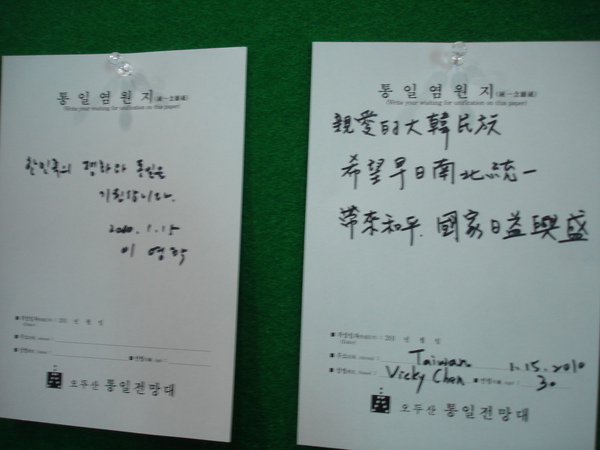 통일염원지(統一念願紙)
(Write your wishing for unification on this paper)
한민족의 평화와 통일을
기원합니다.
2010. 1. 15
이 영
오두산 통일전망대
통일염원지(統一念願紙)
(Write your wishing for unification on this paper)
親愛的大韓民族
希望早日南北統一
帶來和平. 國家日益興盛
Taiwan 1.15.2010
Vicky Chen 30
오두산 통일전망대